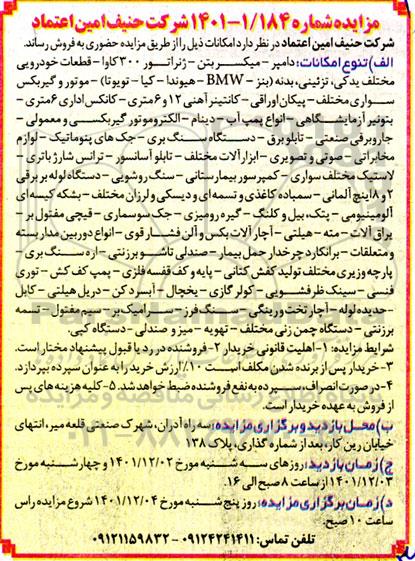 مزایده شماره ۱/۱۸۴-۱۴۰۱ شرکت حنیف امین اعتماد
شرکت حنیف امین اعتماد در نظر دارد امکانات ذیل را از طریق مزایده حضوری به فروش رساند.
الف) تنوع امکانات: دامپر - میکسر بتن - ژنراتور ۳۰۰ کاوا - قطعات خودرویی
مختلف یدکی، تزئینی، بدنه (بنز - BMW - هیوندا - کیا - تویوتا) - موتور و گیربکس
سواری مختلف - پیکان اوراقی - کانتینر آهنی ۱۲ و ۶ متری - کانکس اداری ۶ متری -
بتونیر آزمایشگاهی - انواع پمپ آب - دینام - الکتروموتور گیربکسی و معمولی -
جاروبرقی صنعتی - تابلو برق - دستگاه سنگ بری - جک های پنوماتیک - لوازم
مخابراتی - صوتی و تصویری - ابزار آلات مختلف - تابلو آسانسور - ترانس شارژ باتری -
لاستیک مختلف سواری - کمپرسور بیمارستانی - سنگ روشویی - دستگاه لوله بر برقی
۲ و ۸ اینچ آلمانی - سمباده کاغذی و تسمه ای و دیسکی ولرزان مختلف - بشکه کیسه ای
آلومینیومی - پتک، بیل و کلنگ - گیره رومیزی - جک سوسماری - قیچی مفتول بر -
یراق آلات - مته - هیلتی - آچار آلات بکس و آلن فشار قوی - انواع دوربین مدار بسته
و متعلقات - برانکارد چرخدار حمل بیمار - صندلی تاشو برزنتی - اره سنگ بری
پارچه وزیری مختلف تولید کفش کتانی - پایه و کف قفسه فلزی - پمپ کف کش - توری
فنسی - سینک ظرفشویی - کولر گازی - یخچال - آبسرد کن - دریل هیلتی - کابل
- حدیده لوله - آچار تخت و رینگی - سنگ فرز - سرامیک بر - سیم مفتول - تسمه
برزنتی - دستگاه چمن زنی مختلف - تهویه - میز و صندلی - دستگاه کپی.
شرایط مزایده: ۱- اهلیت قانونی خریدار ۲- فروشنده در رد یا قبول پیشنهاد مختار است.
۳- خریدار پس از برنده شدن مکلف است ۱۰٪ ارزش خرید را به عنوان سپرده بپردازد.
۴- در صورت انصراف، سپرده به نفع فروشنده ضبط خواهد شد. ۵- کلیه هزینه های پس
از فروش به عهده خریدار است.
ب) محل بازدید و برگزاری مزایده: سه راه آدران، شهرک صنعتی قلعه میر، انتهای
خیابان رین کار، بعد از شماره گذاری، پلاک ۱۳۸
ج) زمان بازدید: روزهای سه شنبه مورخ ۱۴۰۱/۱۲/۰۲ و چهارشنبه مورخ
۱۴۰۱/۱۲/۰۳ از ساعت ۸ صبح الی ۱۶.
د) زمان برگزاری مزایده: روز پنج شنبه مورخ ۱۴۰۱/۱۲/۰۴ شروع مزایده راس
ساعت ۱۰ صبح.
تلفن تماس: ۰۹۱۲۴۲۴۱۴۱۱ - ۰۹۱۲۱۱۵۹۸۳۲